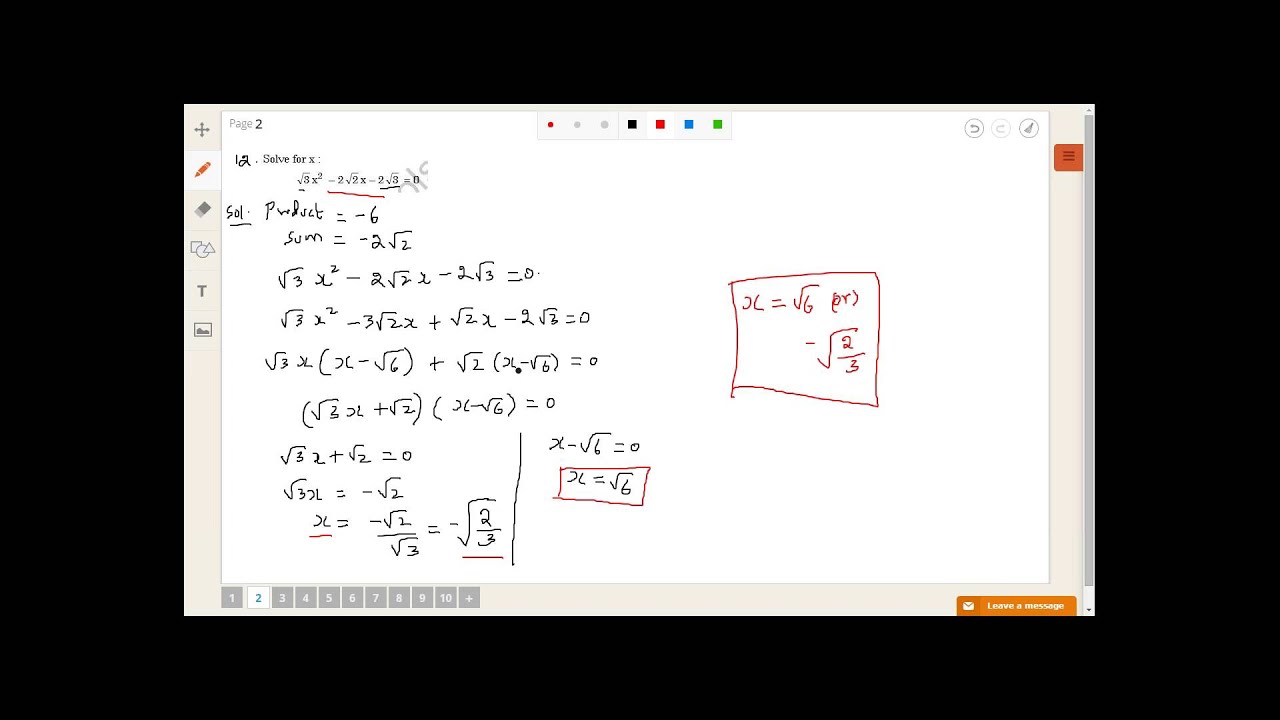 Page 2
12. Solve for x :
√3x² − 2√2x − 2√3 = 0
Sol. Product = -6
Sum = -2√2
√3 x² − 2√2 x − 2√3 = 0.
√3 x² − 3√2x + √2x − 2√3 = 0
√3 x (x − √6) + √2 (x − √6) = 0
(√3 x + √2) (x − √6) = 0
√3 x + √2 = 0
√3x = −√2
x = −√2/√3 = −√(2/3)
x − √6 = 0
x = √6
x = √6 (or)
−√(2/3)
T
1 2 3 4 5 6 7 8 9 10 +
Leave a message